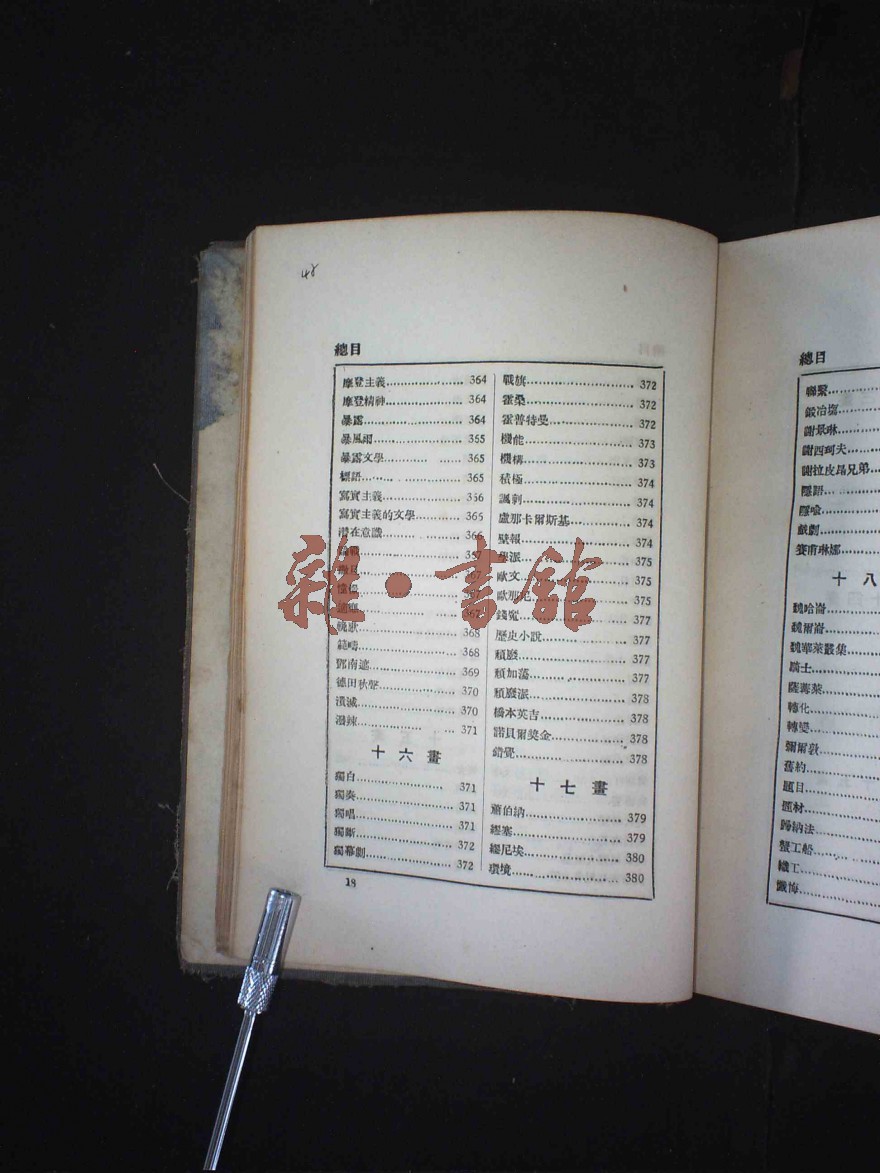 48
總目
摩登主義 364
摩登精神 364
暴露 364
暴風雨 365
暴露文學 365
標語 365
寫實主義 366
寫實主義的文學 365
潛在意識 366
367
367
367
輓歌 368
範疇 368
鄧南遮 369
德田秋聲 370
潰滅 370
潑辣 371
十六畫
獨白 371
獨奏 371
獨唱 371
獨斷 372
獨幕劇 372
戰旗 372
霍桑 372
霍普特曼 372
機能 373
機構 373
積極 374
諷刺 374
盧那卡爾斯基 374
壁報 374
學派 375
歐文 375
歐那尼 375
錢鬼 377
歷史小說 377
頹廢 377
頹加蕩 377
頹廢派 378
橋本英吉 378
諾貝爾獎金 378
錯覺 378
十七畫
蕭伯納 379
繆塞 379
繆尼埃 380
環境 380
18
總目
聯繫
鍛冶場
謝景琳
謝西珂夫
謝拉皮昂兄弟
隱語
隱喻
戲劇
賽甫琳娜
十八
魏哈崙
魏爾崙
魏耶萊叢集
騎士
薩
轉化
轉變
彌爾敦
舊約
題目
題材
歸納法
蟹工船
織工
懺悔
雜·書館